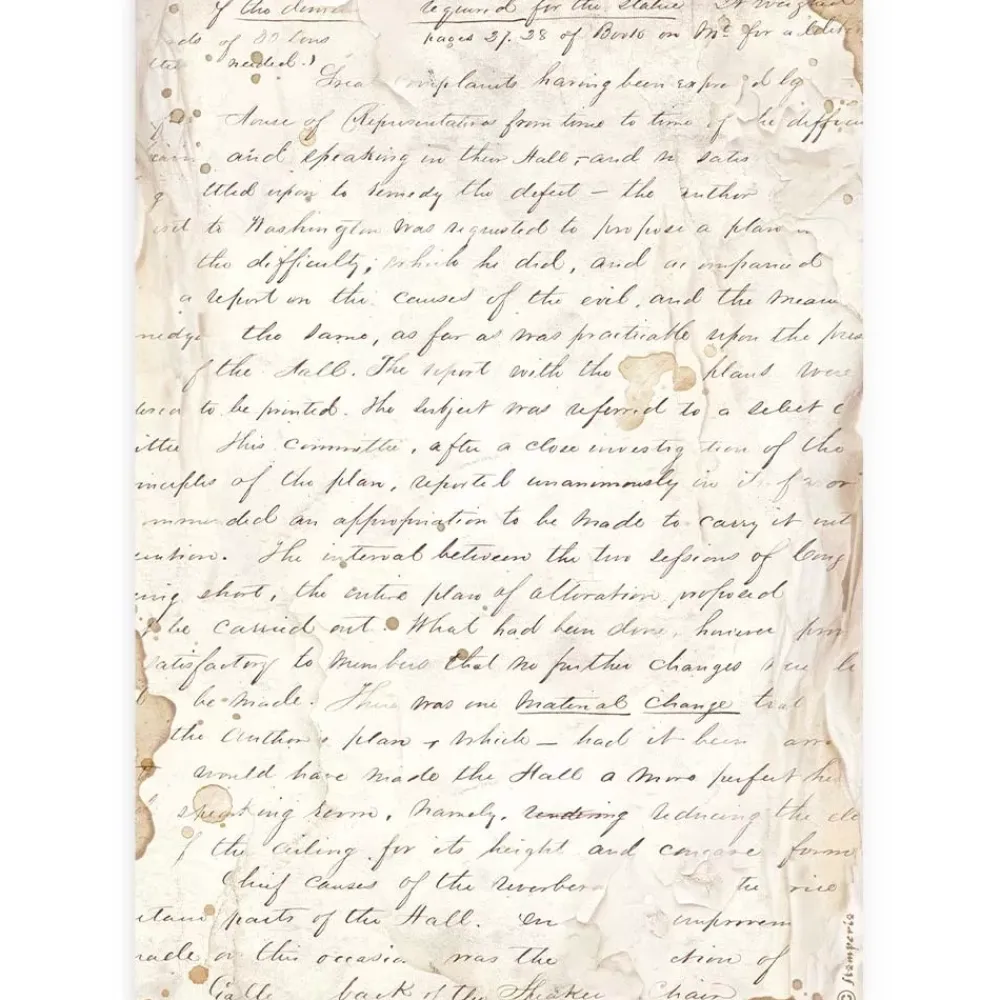 of the desired required for the statue It weighed
of 80 tons pages 27. 28 of Book on Mc for a
needed.)
complaints having been by
House of Representatives from time to time of the difficul
and speaking in their Hall, and no satis
ttled upon to remedy the defect — the author
to Washington was requested to propose a plan
the difficulty; which he did, and accompanied
a report on the causes of the evil, and the mean
the same, as far as was practicable upon the
f the Hall. The report with the plans were
to be printed. The subject was referred to a select c
ittee This committee, after a close investig tion of the
nciples of the plan, reported unanimously in it f or
mmended an appropriation to be made to carry it int
cution. The interval between the two sessions of Cong
eing short, the entire plan of alteration proposed
be carried out. What had been done, however
satisfactory to members that no further changes
be made. There was one material change
the Author's plan, which — had it been
would have made the Hall a more perfect
speaking room, namely, rendering reducing the
f the ceiling for its height and concave form
Chief causes of the reverbera the
parts of the Hall. an improvem
ade on this occasion was the ction of
Galle back of the Speaker Chair
© Stamperia